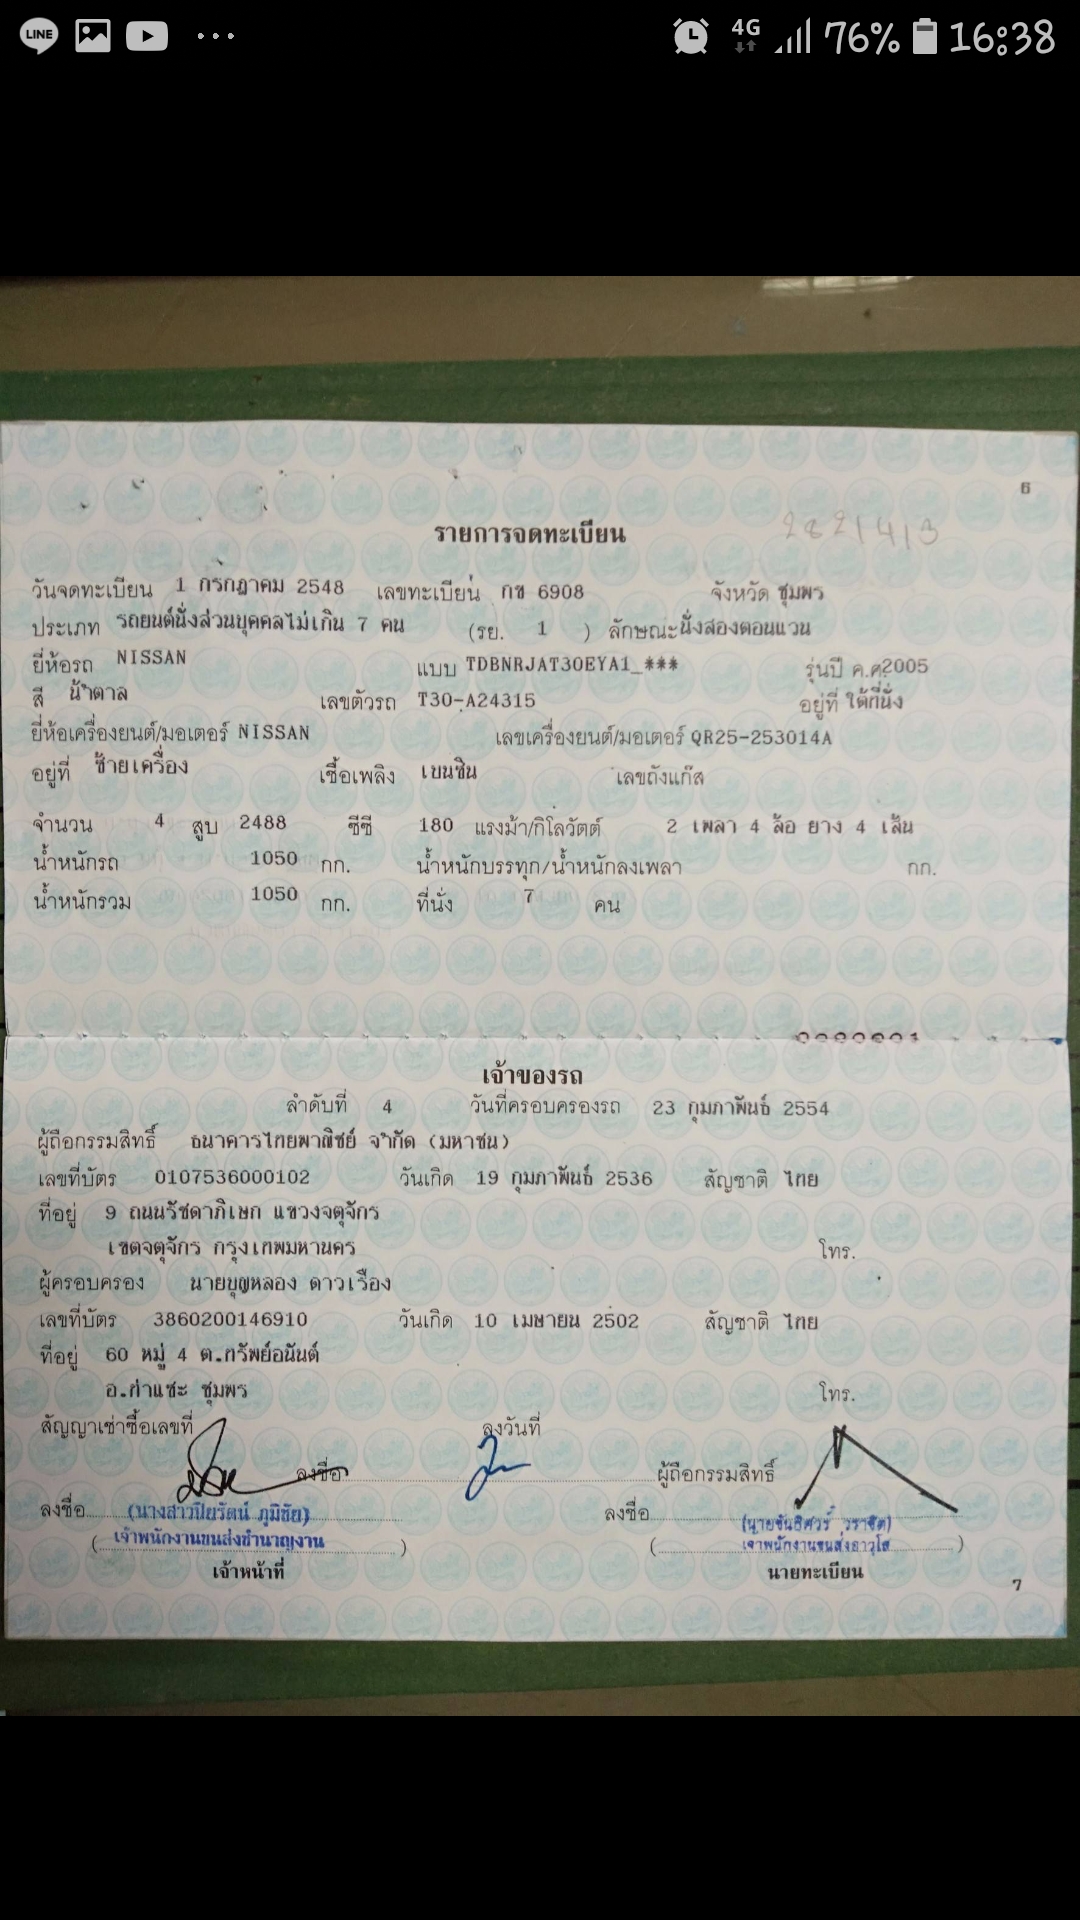 LINE
4G 76% 16:38
6
รายการจดทะเบียน
282|4|3
วันจดทะเบียน 1 กรกฎาคม 2548 เลขทะเบียน กข 6908 จังหวัด ชุมพร
ประเภท รถยนต์นั่งส่วนบุคคลไม่เกิน 7 คน (รย. 1 ) ลักษณะ นั่งสองตอนแวน
ยี่ห้อรถ NISSAN แบบ TDBNRJAT30EYA1_*** รุ่นปี ค.ศ. 2005
สี น้ำตาล เลขตัวรถ T30-A24315 อยู่ที่ ใต้ที่นั่ง
ยี่ห้อเครื่องยนต์/มอเตอร์ NISSAN เลขเครื่องยนต์/มอเตอร์ QR25-253014A
อยู่ที่ ซ้ายเครื่อง เชื้อเพลิง เบนซิน เลขถังแก๊ส
จำนวน 4 สูบ 2488 ซีซี 180 แรงม้า/กิโลวัตต์ 2 เพลา 4 ล้อ ยาง 4 เส้น
น้ำหนักรถ 1050 กก. น้ำหนักบรรทุก/น้ำหนักลงเพลา กก.
น้ำหนักรวม 1050 กก. ที่นั่ง 7 คน
เจ้าของรถ
ลำดับที่ 4 วันที่ครอบครองรถ 23 กุมภาพันธ์ 2554
ผู้ถือกรรมสิทธิ์ ธนาคารไทยพาณิชย์ จำกัด (มหาชน)
เลขที่บัตร 0107536000102 วันเกิด 19 กุมภาพันธ์ 2536 สัญชาติ ไทย
ที่อยู่ 9 ถนนรัชดาภิเษก แขวงจตุจักร
เขตจตุจักร กรุงเทพมหานคร โทร.
ผู้ครอบครอง นายบุญหลอง ดาวเรือง
เลขที่บัตร 3860200146910 วันเกิด 10 เมษายน 2502 สัญชาติ ไทย
ที่อยู่ 60 หมู่ 4 ต.ทรัพย์อนันต์
อ.ท่าแซะ ชุมพร โทร.
สัญญาเช่าซื้อเลขที่ ลงวันที่
ลงชื่อ ผู้ถือกรรมสิทธิ์
ลงชื่อ (นางสาวปิยรัตน์ ภูมิชัย) ลงชื่อ
(เจ้าพนักงานขนส่งชำนาญงาน) (เจ้าพนักงานขนส่งอาวุโส)
เจ้าหน้าที่ นายทะเบียน
7